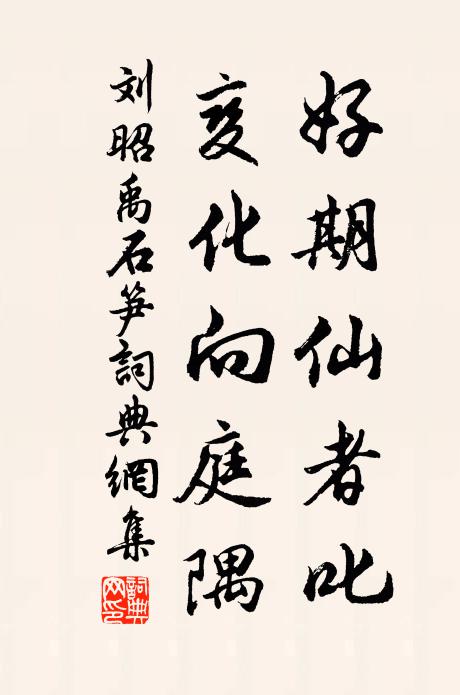 好期仙者叱
变化向庭隅
刘昭禹石笋詞典網集
詞典
网印